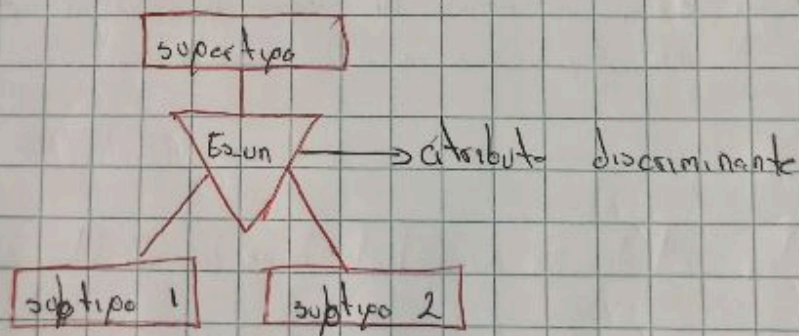 supertipo
Es un
atributo discriminante
subtipo 1
subtipo 2